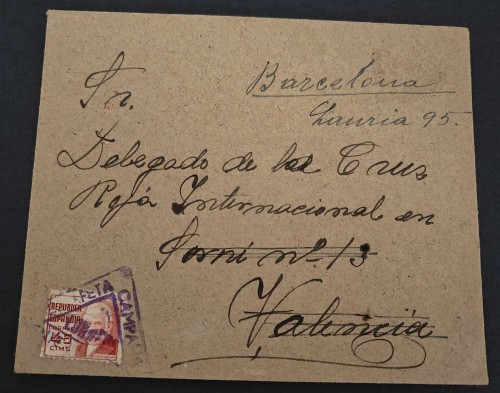 Barcelona
Lauria 95.
Sr.
Delegado de la Cruz
Roja Internacional en
Sorni nº 13
Valencia
REPUBLICA
ESPAÑOLA
CORREOS
CTMS